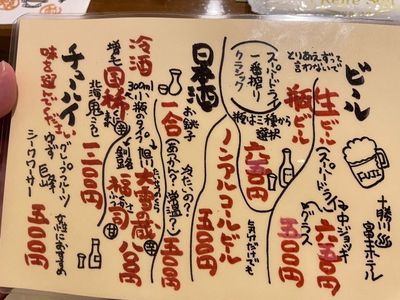 ビール
とりあえずって
言わないで
生ビール
スーパードライ
中ジョッキ
六五〇円
グラス
五〇〇円
十勝川♨
富士ホテル
瓶ビール
瓶は三種から
選択
スーパードライ
一番搾り
クラシック
六五〇円
ノンアルコールビール
五〇〇円
日本酒
お銚子
一合
五〇〇円
冷酒
300ml
小瓶のタイプ
旭川
大雪の蔵
釧路
福司
八〇〇円
増毛
国稀
一、二〇〇円
チューハイ
味を選んでください
グレープフルーツ
ゆず
巨峰
シークワーサー
五〇〇円
女性におすすめ